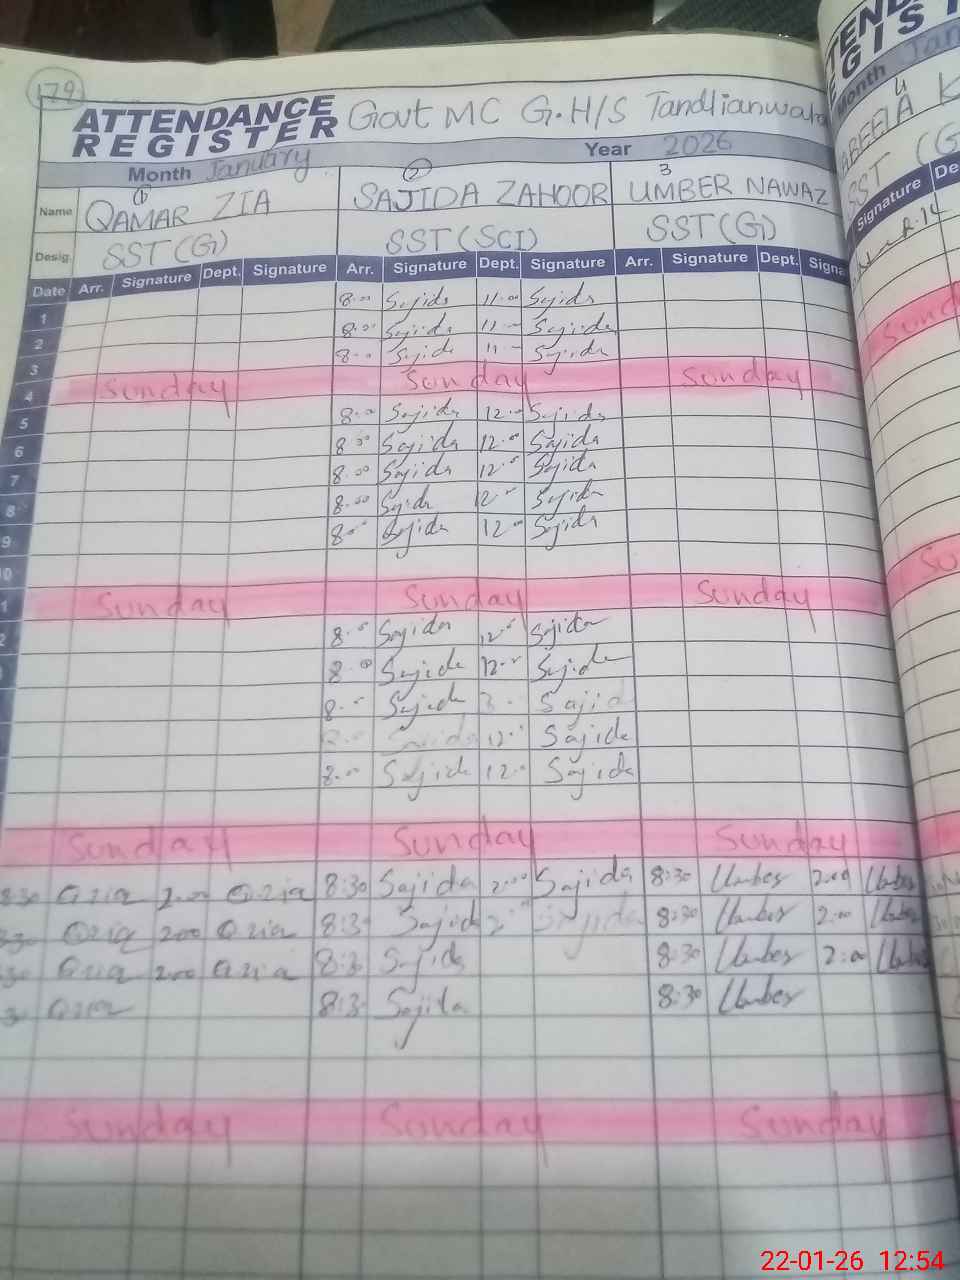 179
ATTENDANCE REGISTER Govt MC G.H/S Tandlianwala
Month January Year 2026
1 2 3 4
Name QAMAR ZIA SAJIDA ZAHOOR UMBER NAWAZ
Desig. SST (G) SST (SCI) SST (G) SST (G
Date Arr. Signature Dept. Signature Arr. Signature Dept. Signature Arr. Signature Dept. Signa Signature De
1 8:00 Sajida 11:00 Sajida
2 8:00 Sajida 11:00 Sajida
3 8:00 Sajida 11:00 Sajida
4 Sunday Sunday Sunday
5 8:00 Sajida 12:00 Sajida
6 8:00 Sajida 12:00 Sajida
7 8:00 Sajida 12:00 Sajida
8 8:00 Sajida 12:00 Sajida
9 8:00 Sajida 12:00 Sajida
10
1 Sunday Sunday Sunday
2 8:00 Sajida 12:00 Sajida
8:00 Sajida 12:00 Sajida
8:00 Sajida Sajida
Sajida 12:00 Sajida
8:00 Sajida 12:00 Sajida
Sunday Sunday Sunday
8:30 Qzia 2:00 Qzia 8:30 Sajida 2:00 Sajida 8:30 Umber 2:00 Umber
8:30 Qzia 2:00 Qzia 8:30 Sajida 2:00 Sajida 8:30 Umber 2:00 Umber
30 Qzia 2:00 Qzia 8:30 Sajida 8:30 Umber 2:00 Umber
30 Qzia 8:30 Sajida 8:30 Umber
Sunday Sunday Sunday
22-01-26 12:54